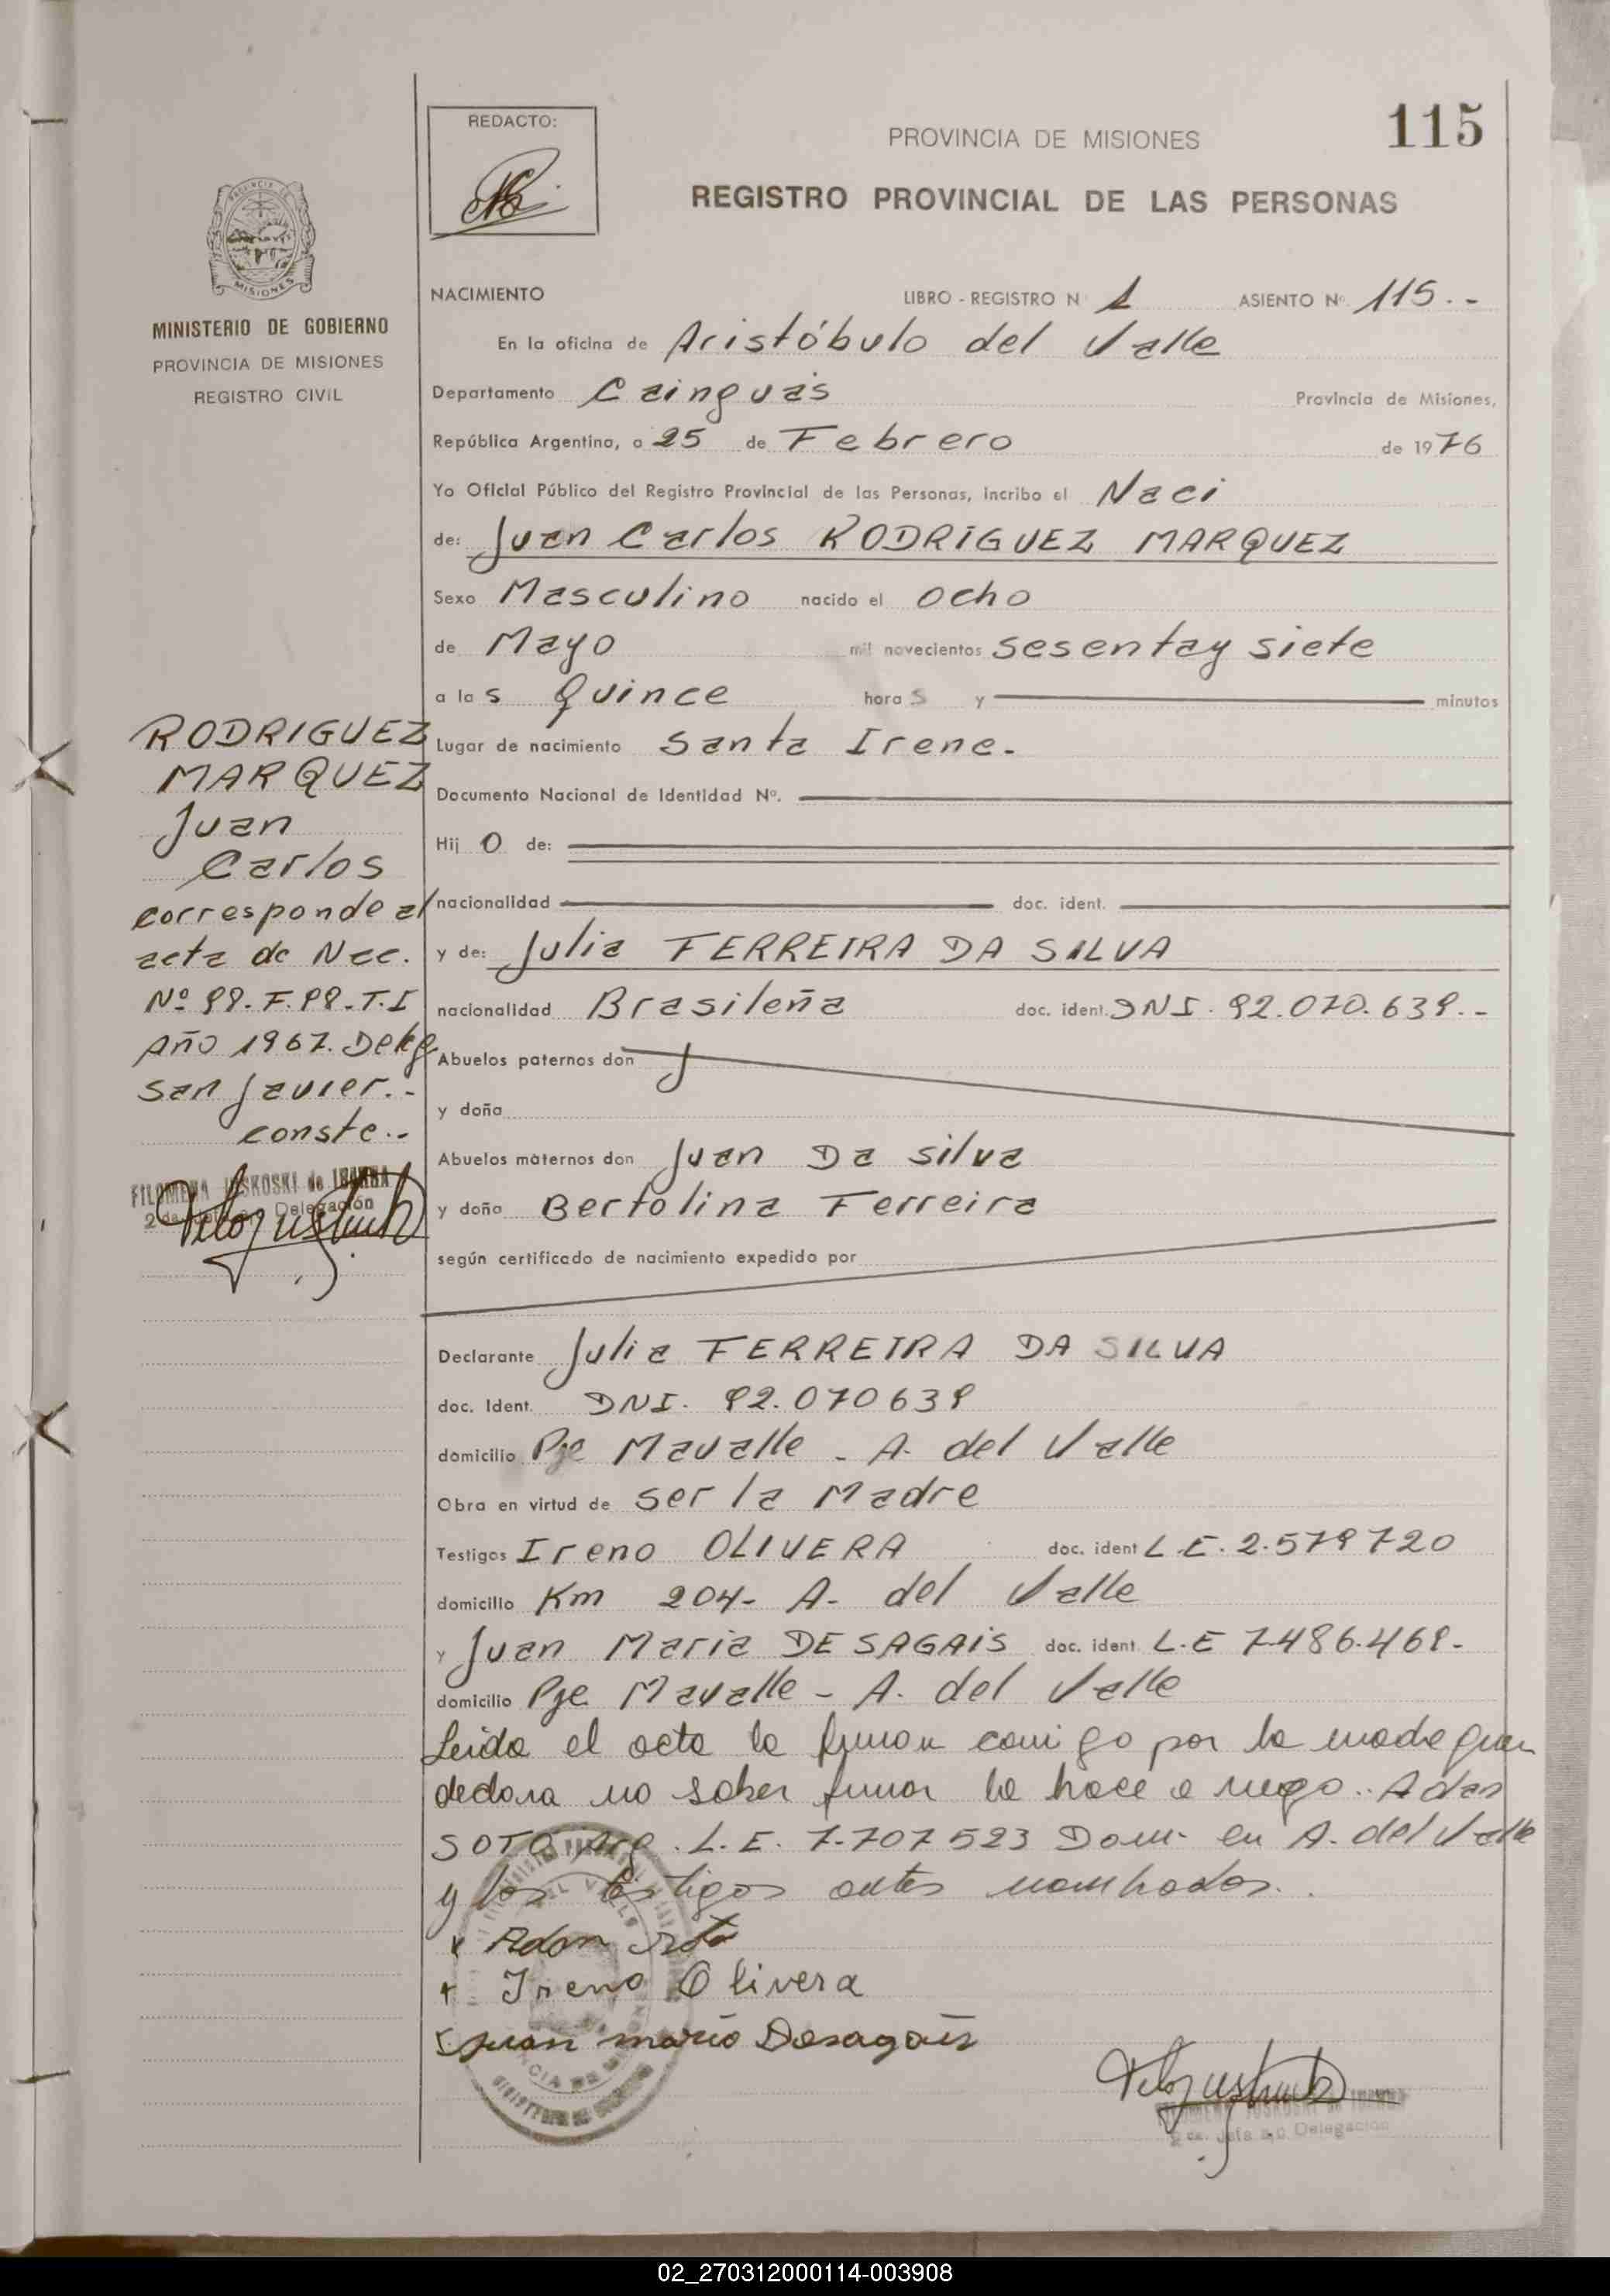 REDACTO:
PROVINCIA DE MISIONES
115
REGISTRO PROVINCIAL DE LAS PERSONAS
MISIONES
MINISTERIO DE GOBIERNO
PROVINCIA DE MISIONES
REGISTRO CIVIL
NACIMIENTO LIBRO - REGISTRO N 1 ASIENTO Nº. 115.-
En la oficina de Aristóbulo del Valle
Departamento Cainguás Provincia de Misiones,
República Argentina, a 25 de Febrero de 1976
Yo Oficial Público del Registro Provincial de las Personas, incribo el Naci
de: Juan Carlos RODRIGUEZ MARQUEZ
Sexo Masculino nacido el ocho
de Mayo mil novecientos sesentay siete
a las Quince horas y minutos
Lugar de nacimiento Santa Irene.
Documento Nacional de Identidad Nº.
Hijo de:
nacionalidad doc. ident.
y de: Julia FERREIRA DA SILVA
nacionalidad Brasileña doc. ident. DNI. 92.070.639.-
Abuelos paternos don
y doña
Abuelos maternos don Juan Da silva
y doña Bertolina Ferreira
según certificado de nacimiento expedido por
RODRIGUEZ
MARQUEZ
Juan
Carlos
corresponde al
acta de Nac.
Nº 99.F.99.T.I
Año 1967. Deleg
San Javier.-
conste.-
FILOMENA JUSKOSKI de
2da. Delegación
Declarante Julia FERREIRA DA SILVA
doc. Ident. DNI. 92.070639
domicilio Pje Mavalle - A. del Valle
Obra en virtud de ser la Madre
Testigos Ireno OLIVERA doc. ident L.E. 2.579720
domicilio Km 204- A. del Valle
y Juan Maria DESAGAIS doc. ident. L.E 7.486.469.-
domicilio Pje Mavalle - A. del Valle
Leida el acta la firman conmigo por la madre quien
declara no saber firmar lo hace a ruego.. Adan
SOTO Arg. L.E. 7.707523 Dom. en A. del Valle
y los testigos antes nombrados..
x Adan Soto
+ Ireno Olivera
Juan mario Desagais
FILOMENA JUSKOSKI de
2da. Jefa a/c Delegación
02_270312000114-003908